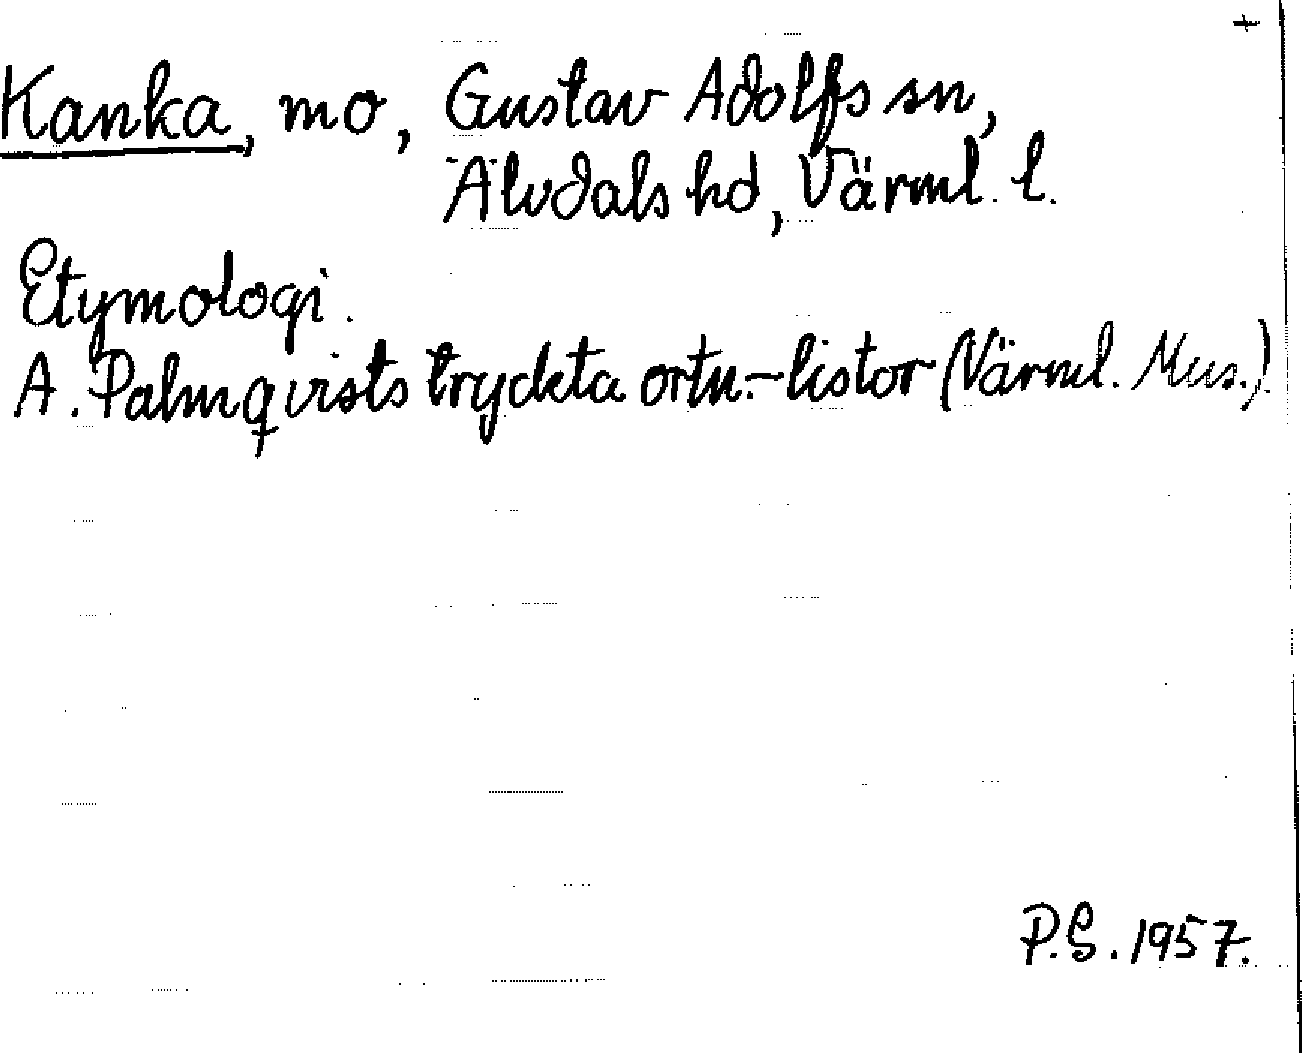 +
Kanka, mo, Gustav Adolfs sn,
Älvdals hd, Värml. l.
Etymologi.
A. Palmqvists tryckta ortn.-listor (Värml. Mus.).
P.S. 1957.